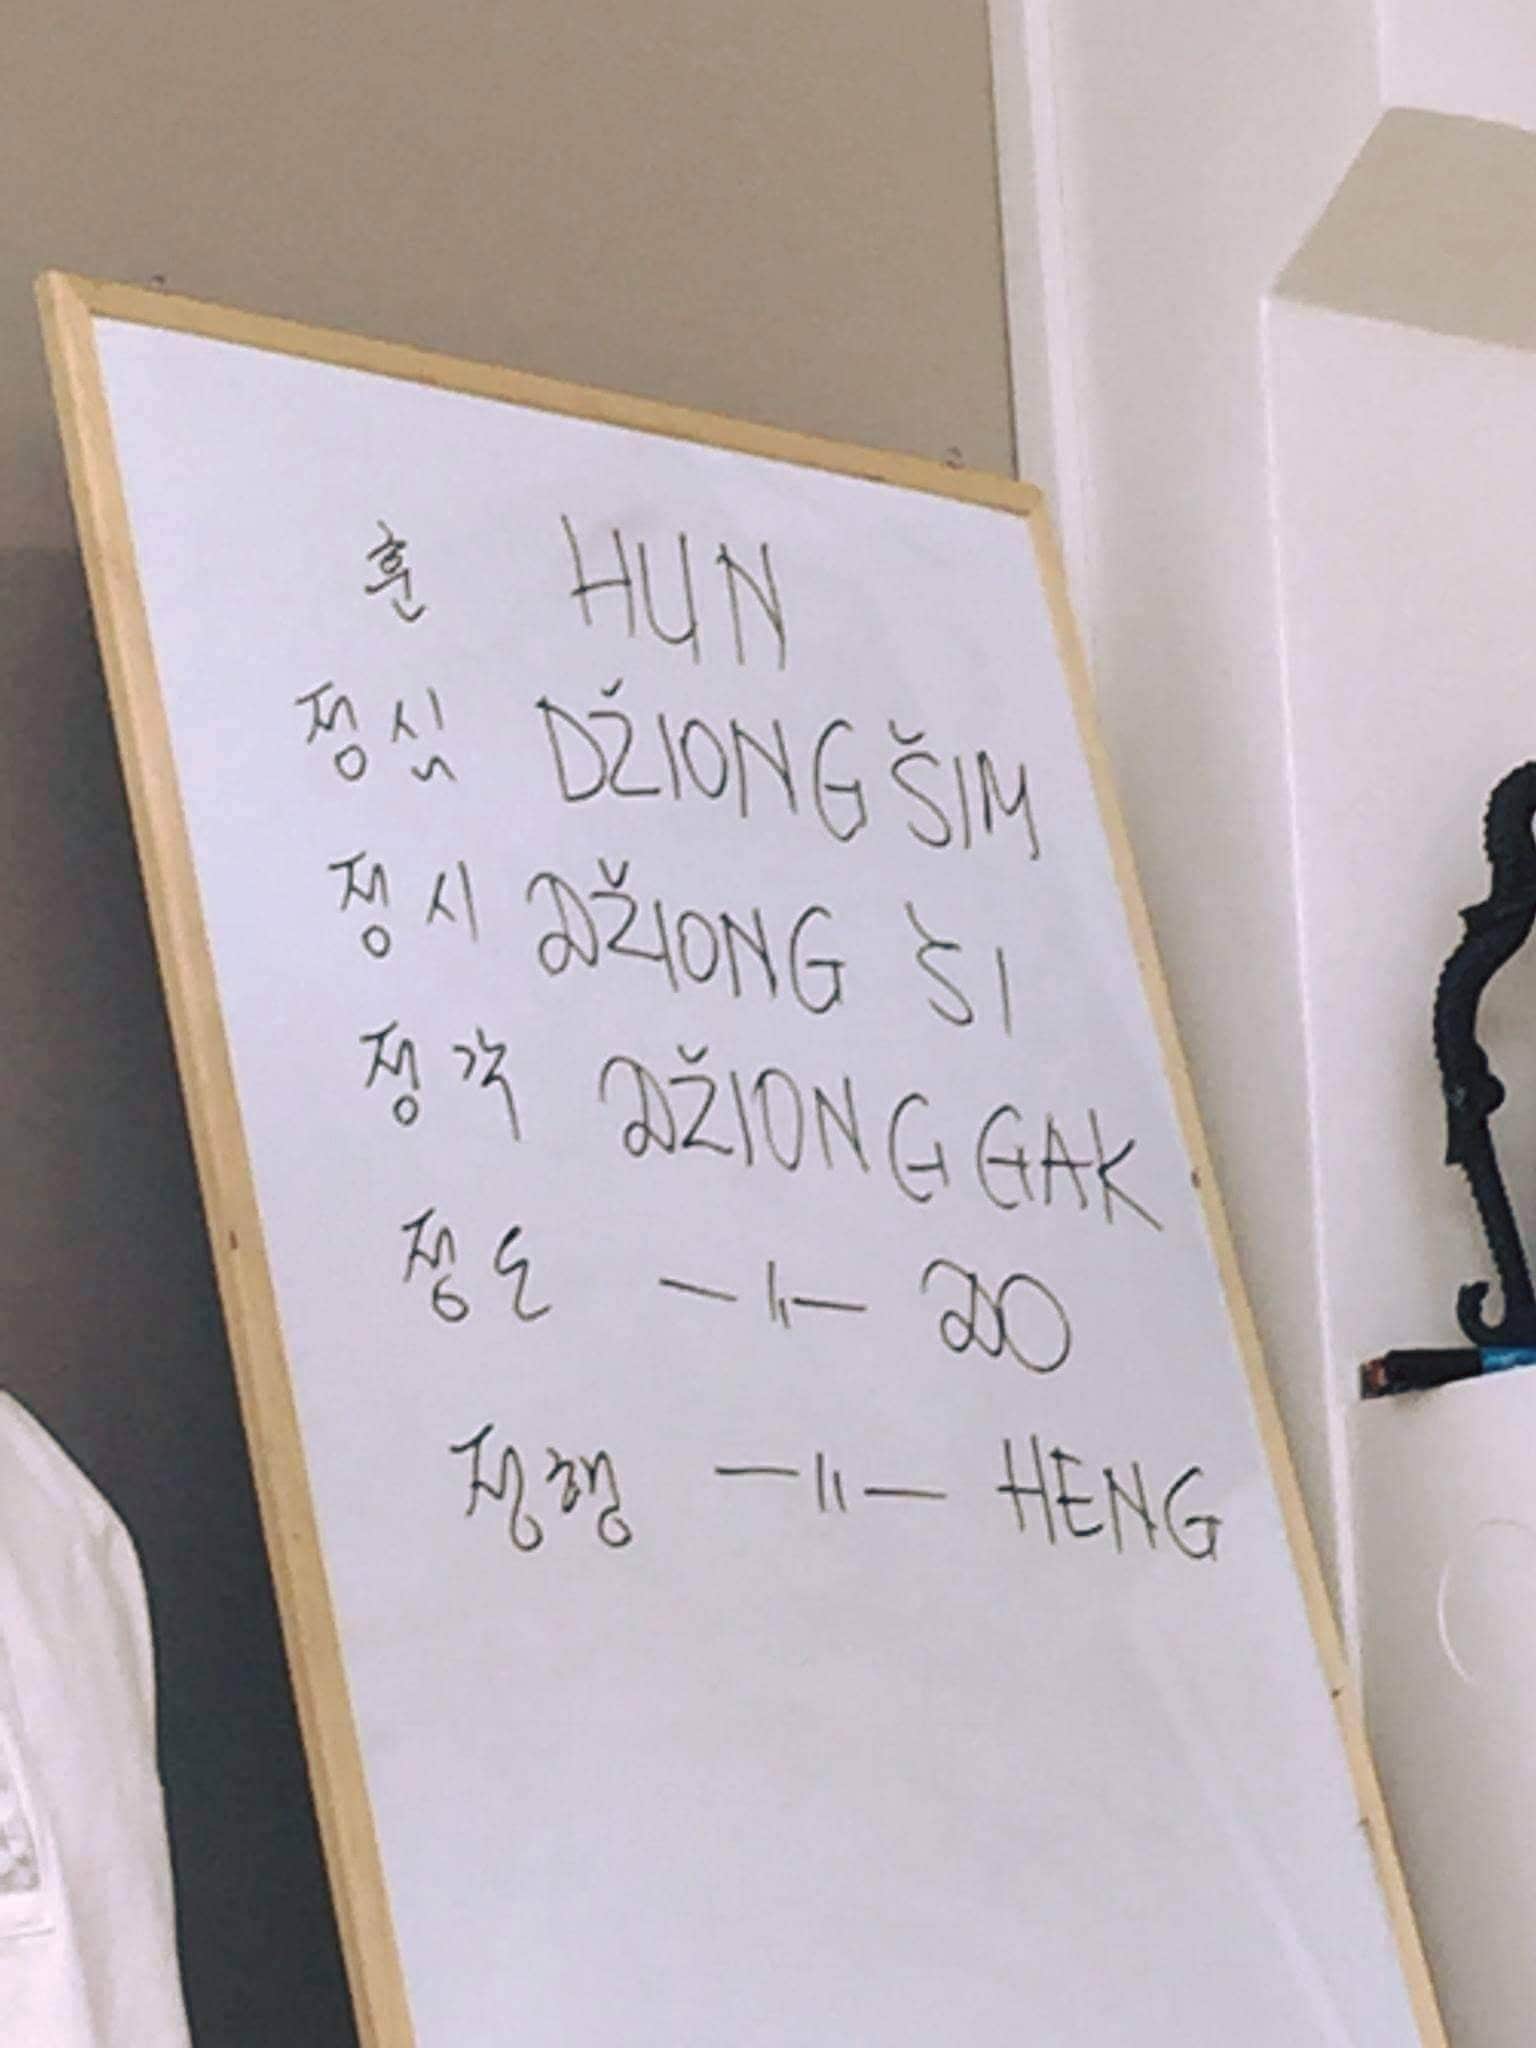 훈 HUN
정심 DŽIONG ŠIM
정시 DŽIONG ŠI
정각 DŽIONG GAK
정도 —〃— DO
정행 —〃— HENG